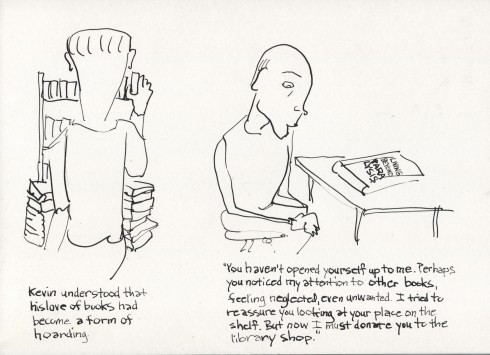 Kevin understood that
his love of books had
become a form of
hoarding.
"You haven't opened yourself up to me. Perhaps
you noticed my attention to other books,
feeling neglected, even unwanted. I tried to
reassure you looking at your place on the
shelf. But now I must donate you to the
library shop."